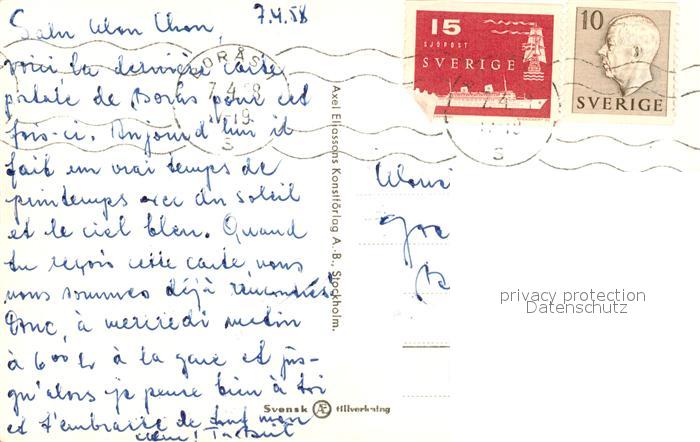 7.4.58
Salu mon chou,
voici la dernière carte
postale de Borås pour cet
fois-ci. Aujourd'hui il
fait un vrai temps de
printemps avec du soleil
et le ciel bleu. Quand
tu reçois cette carte nous
nous sommes déjà rencontrés.
Donc, à mercredi matin
à 6 00 h à la gare et jus-
qu'alors je pense bien à toi
et t'embrasse de tout mon
cœur!
BORÅS
7.4.58
19
S
15
SJÖPOST
SVERIGE
10
SVERIGE
7.4
19
S
Axel Eliassons Konstförlag A.-B., Stockholm.
Svensk Æ tillverkning
privacy protection
Datenschutz